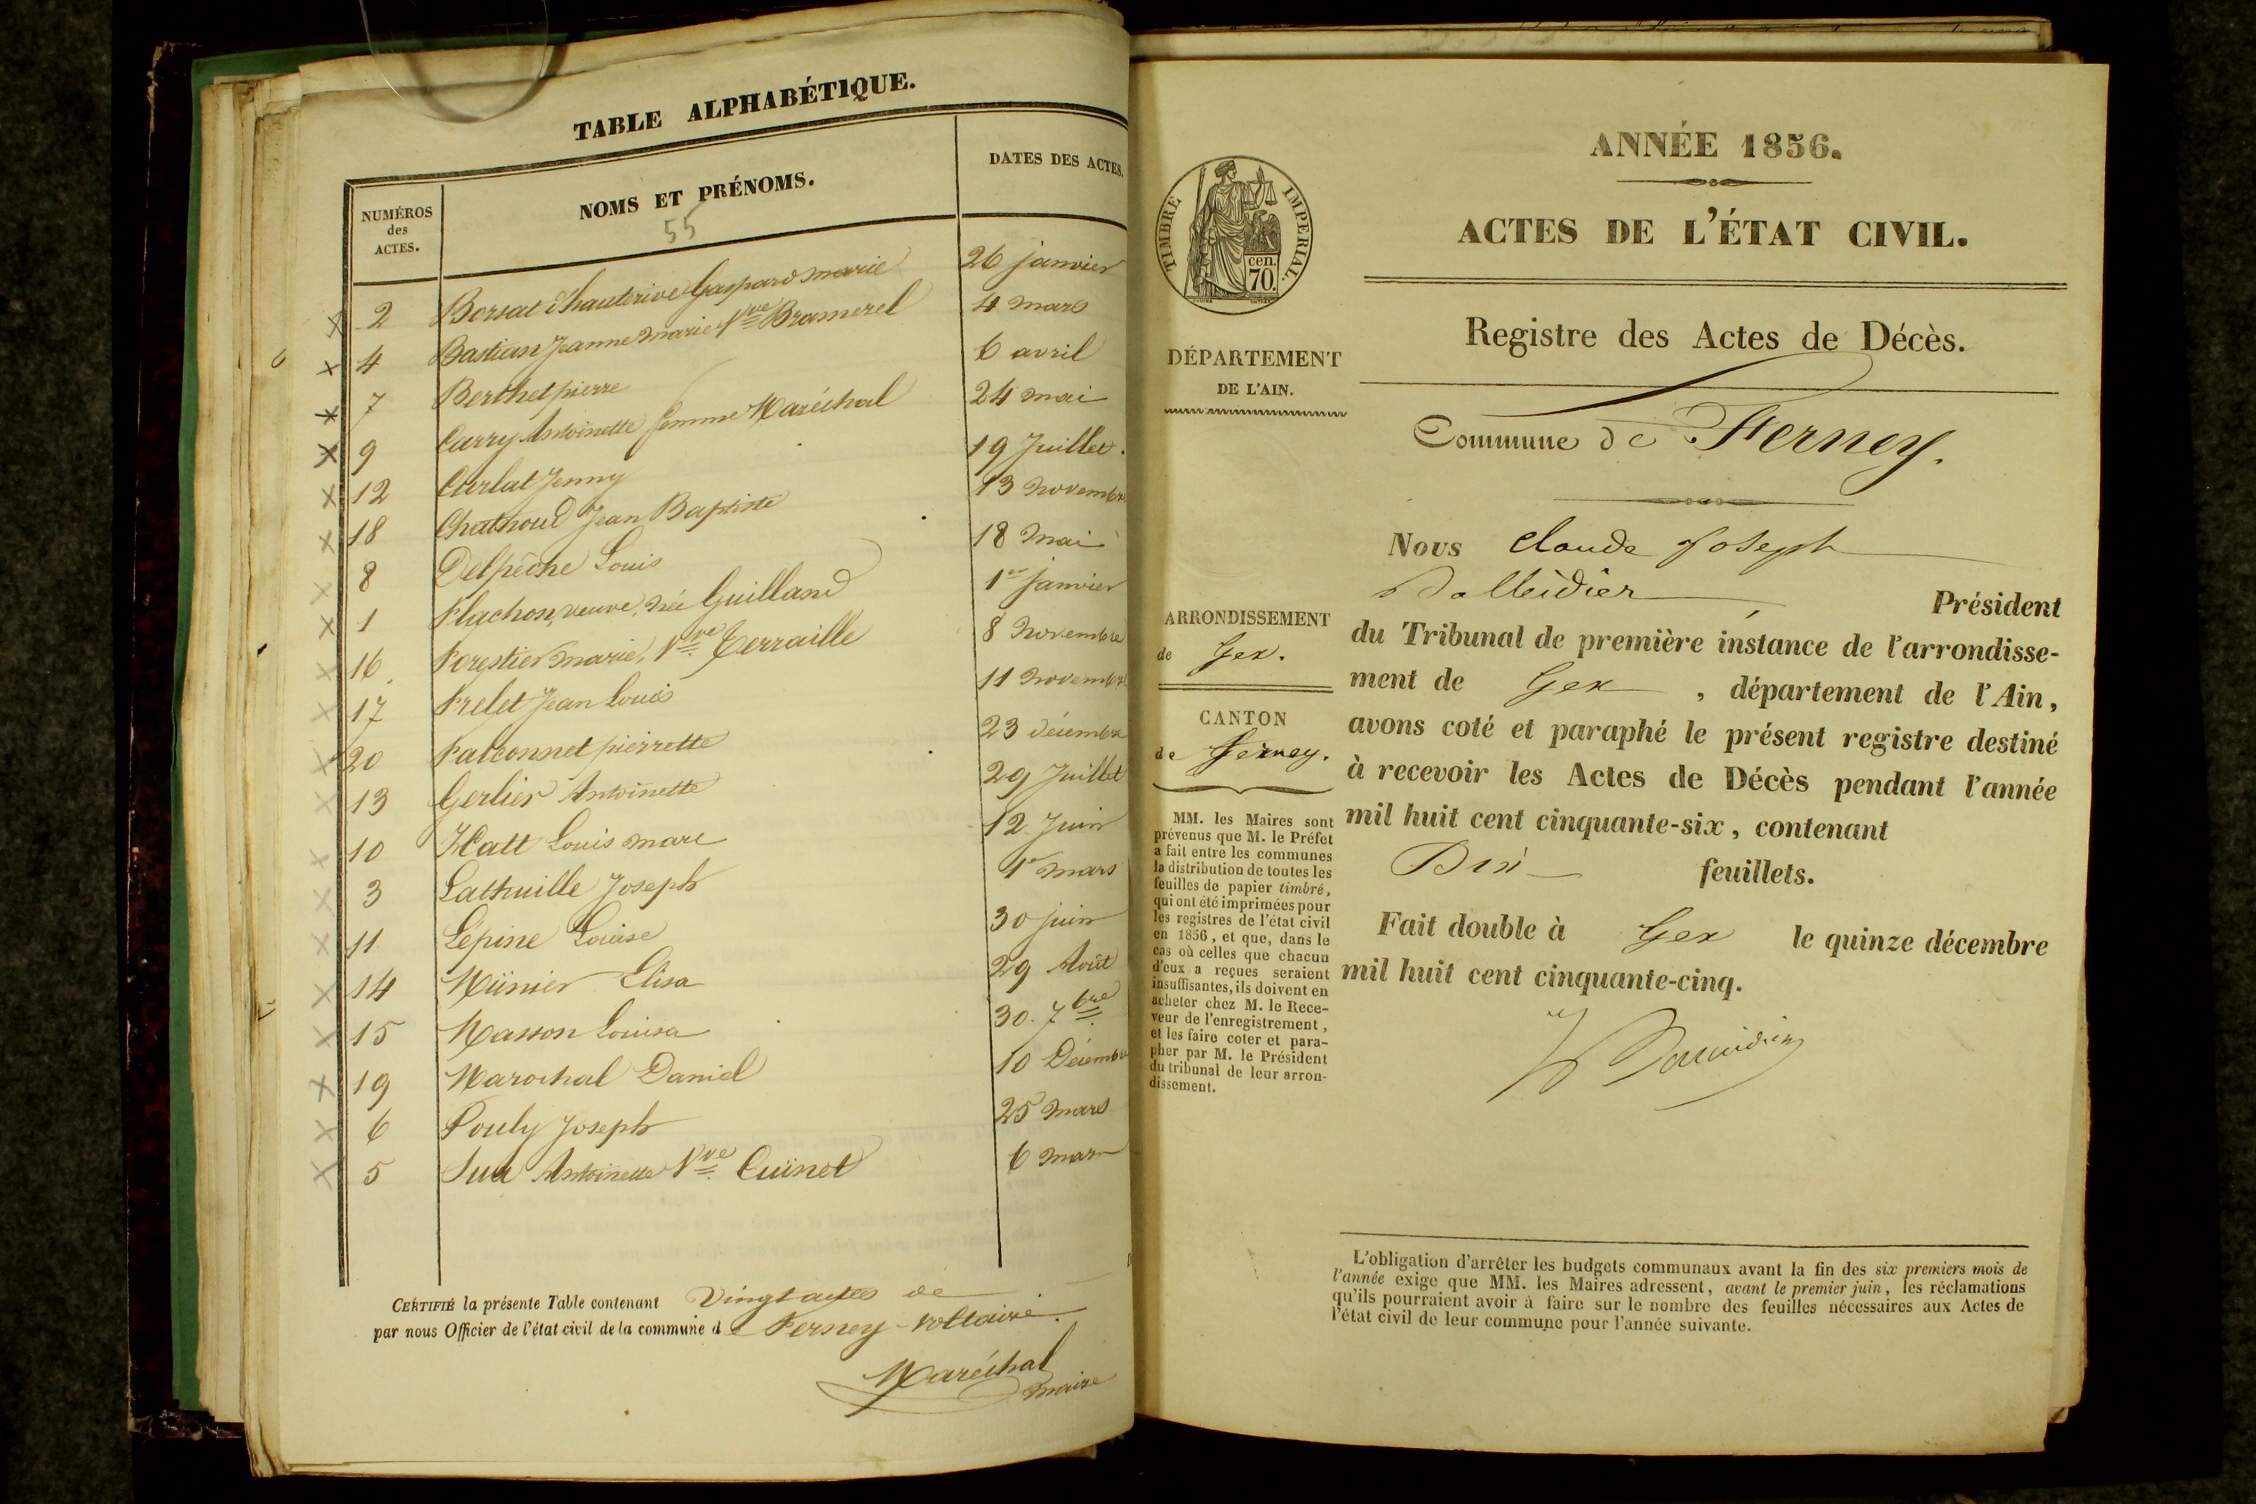 TABLE ALPHABÉTIQUE.
NUMÉROS des ACTES. NOMS ET PRÉNOMS. DATES DES ACTES.
55
2 Borsat d'hauterive Gaspard marie 26 janvier
4 Bastian Jeanne marie Vve Bramerel 4 mars
7 Berthet pierre 6 avril
9 Carry Antoinette femme Maréchal 24 mai
12 Carlat Jenny 19 Juillet.
18 Chathoud Jean Baptiste 13 novembre
8 Delpêche Louis 18 mai
1 Flachon, veuve, née Guilland 1er janvier
16. Forestier marie, Vve Terraille 8 novembre
17 Frelet Jean Louis 11 novembre
20 Falconnet pierrette 23 décembre
13 Gerlier Antoinette 29 Juillet
10 Hatt Louis marc 12 Juin
3 Lathuille Joseph 1er mars
11 Lépine Louise 30 juin
14 Münier Elisa 29 Août
15 Masson Louisa 30. 7bre
19 Marochal Daniel 10 Décembre
6 Pouly Joseph 25 mars
5 Sua Antoinette Vve Cuinet 6 mars
CERTIFIÉ la présente Table contenant Vingt actes de
par nous Officier de l'état civil de la commune de Ferney-Voltaire.
Maréchal
maire
ANNÉE 1856.
ACTES DE L'ÉTAT CIVIL.
TIMBRE IMPÉRIAL.
cen.
70.
Registre des Actes de Décès.
DÉPARTEMENT
DE L'AIN.
Commune de Ferney.
Nous Claude Joseph
Président
du Tribunal de première instance de l'arrondisse-
ment de Gex, département de l'Ain,
avons coté et paraphé le présent registre destiné
à recevoir les Actes de Décès pendant l'année
mil huit cent cinquante-six, contenant
Dix feuillets.
Fait double à Gex le quinze décembre
mil huit cent cinquante-cinq.
ARRONDISSEMENT
de Gex.
CANTON
de Ferney.
MM. les Maires sont
prévenus que M. le Préfet
a fait entre les communes
la distribution de toutes les
feuilles de papier timbré,
qui ont été imprimées pour
les registres de l'état civil
en 1856, et que, dans le
cas où celles que chacun
d'eux a reçues seraient
insuffisantes, ils doivent en
acheter chez M. le Rece-
veur de l'enregistrement,
et les faire coter et para-
pher par M. le Président
du tribunal de leur arron-
dissement.
L'obligation d'arrêter les budgets communaux avant la fin des six premiers mois de
l'année exige que MM. les Maires adressent, avant le premier juin, les réclamations
qu'ils pourraient avoir à faire sur le nombre des feuilles nécessaires aux Actes de
l'état civil de leur commune pour l'année suivante.